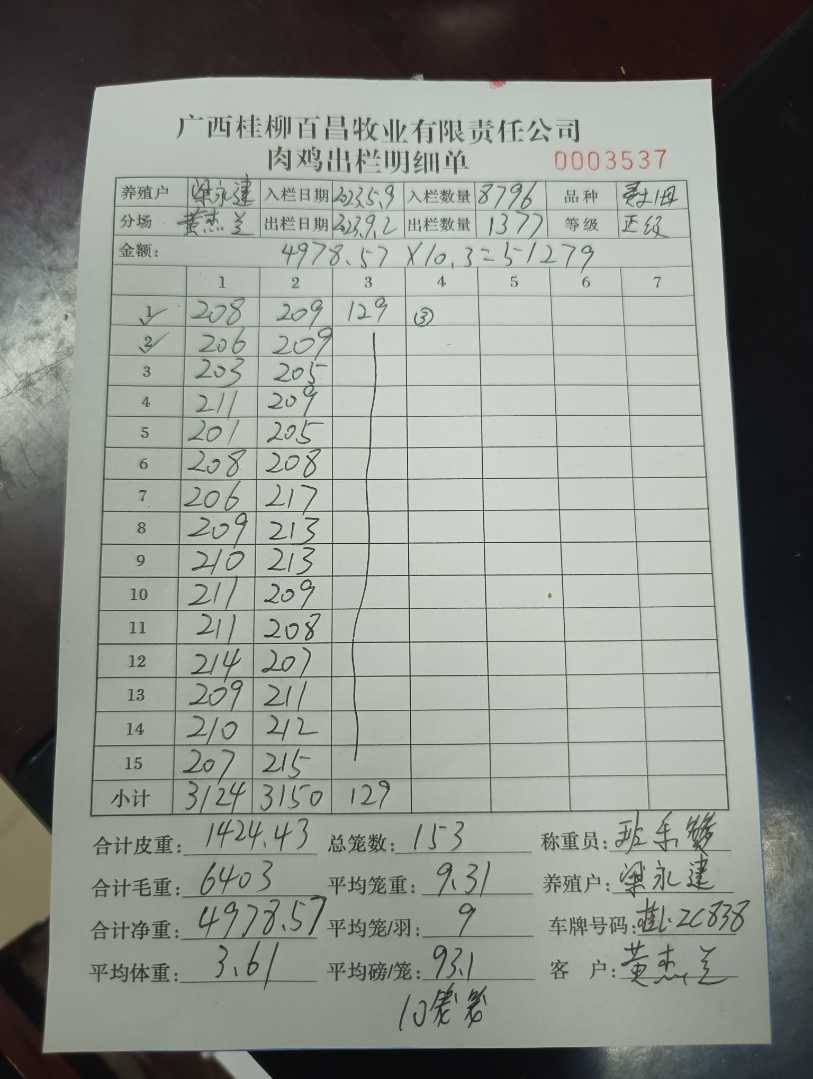 广西桂柳百昌牧业有限责任公司
肉鸡出栏明细单 0003537
养殖户 梁永建 入栏日期 2023.5.9 入栏数量 8796 品种
分场 黄杰兰 出栏日期 2023.9.2 出栏数量 1377 等级 正级
金额: 4978.57 X10.3=51279
1 2 3 4 5 6 7
1 208 209 129 ③
2 206 209
3 203 205
4 211 209
5 201 205
6 208 208
7 206 217
8 209 213
9 210 213
10 211 209
11 211 208
12 214 207
13 209 211
14 210 212
15 207 215
小计 3124 3150 129
合计皮重: 1424.43 总笼数: 153 称重员:
合计毛重: 6403 平均笼重: 9.31 养殖户: 梁永建
合计净重: 4978.57 平均笼/羽: 9 车牌号码: 桂L·2C838
平均体重: 3.61 平均磅/笼: 93.1 客户: 黄杰兰
10